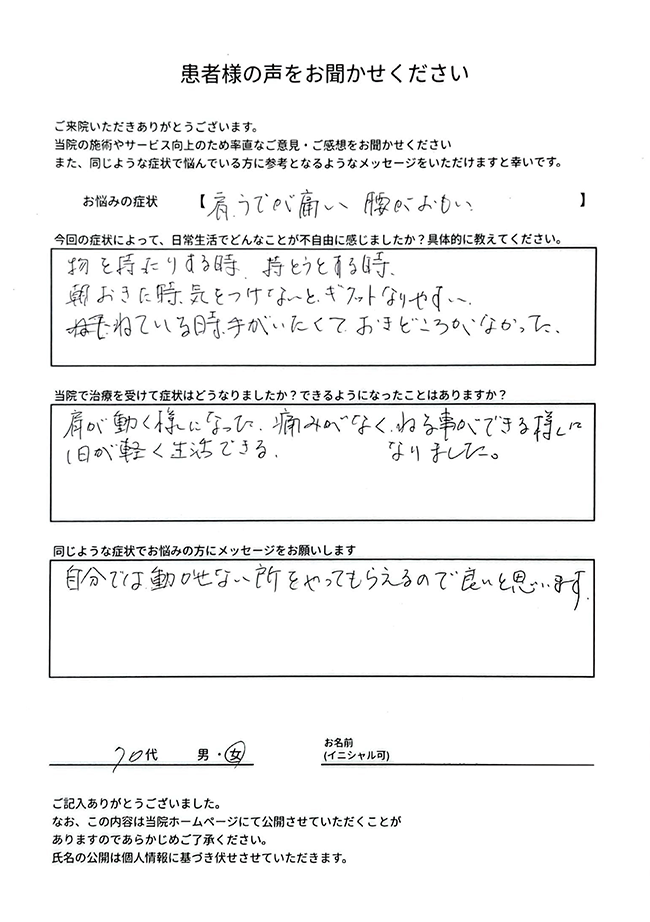 患者様の声をお聞かせください
ご来院いただきありがとうございます。
当院の施術やサービス向上のため率直なご意見・ご感想をお聞かせください
また、同じような症状で悩んでいる方に参考となるようなメッセージをいただけますと幸いです。
お悩みの症状 【肩、うでが痛い 腰がおもい 】
今回の症状によって、日常生活でどんなことが不自由に感じましたか？具体的に教えてください。
物を持ったりする時、持とうとする時、
朝おきた時、気をつけないと、ギクットなりやすい、
ねている時、手がいたくて、おきどころがなかった、
当院で治療を受けて症状はどうなりましたか？できるようになったことはありますか？
肩が動く様になった、痛みがなく、ねる事ができる様に
1日が軽く生活できる、 なりました。
同じような症状でお悩みの方にメッセージをお願いします
自分では、動かせない所をやってもらえるので良いと思います、
70代 男・女
お名前
(イニシャル可)
ご記入ありがとうございました。
なお、この内容は当院ホームページにて公開させていただくことが
ありますのであらかじめご了承ください。
氏名の公開は個人情報に基づき伏せさせていただきます。